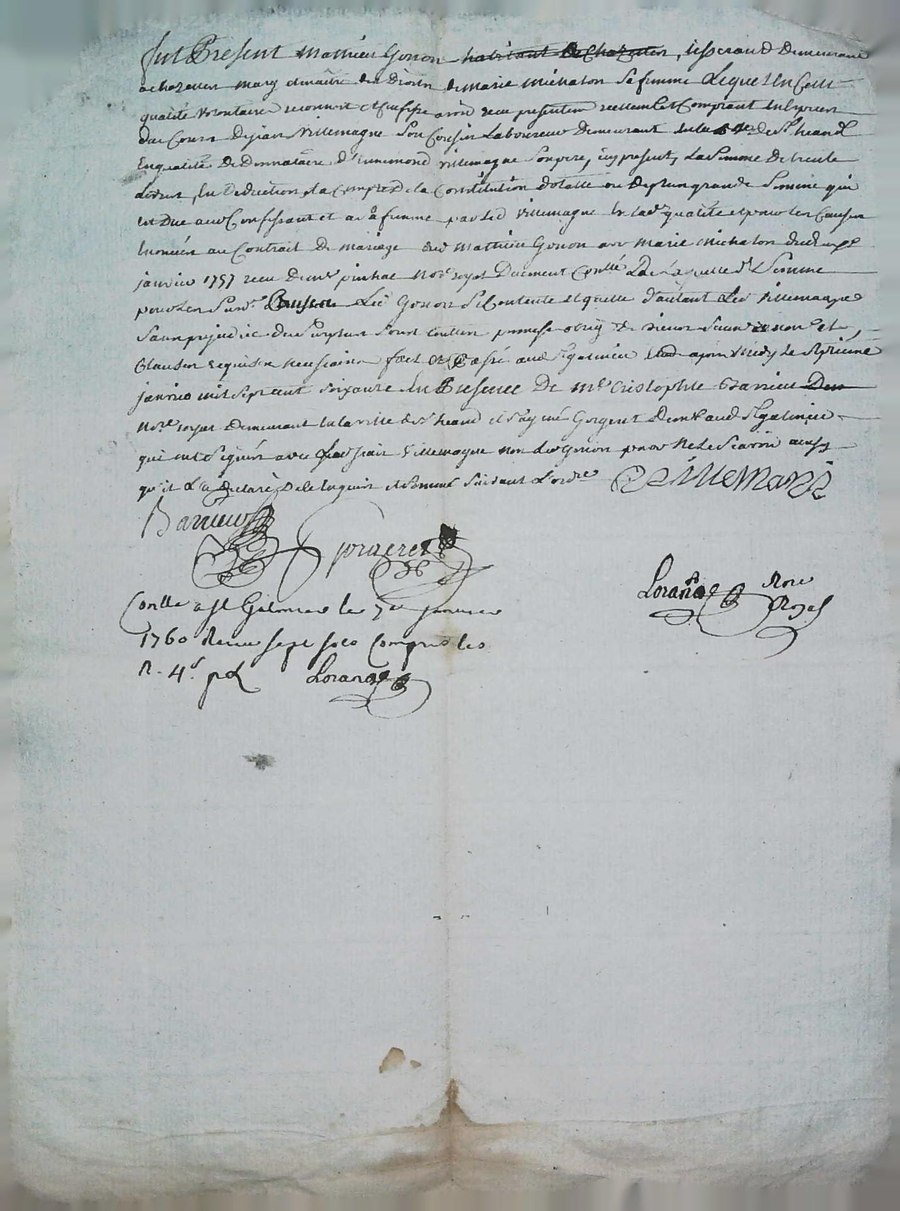 fut Present Mathieu Gonon habitant de Chazelles, tisserand demeurant
a chazelles mary et maître des Droits de marie michalon sa femme Lequel En cette
qualité volontaire reconnoit et confesse avoir receu presentem reellemt et Comptant En Espèces
du Cours de jean villemagne son Laboureur demeurant de St heand
En qualité De Donnataire d'ennemond villemagne son pere, icy present, La Somme De trente
Livres, En Deduction et a Compte de la Constitution dotalle ou De plus grande Somme qui
est Due aud Confessant et a sa femme par Led villemagne En lad qualité et pour les Causes
Enoncées au Contrait de mariage dud Mathieu Gonon avec Marie michalon du
janvier 1757 receu de me pinhac Nore royal Duement Conllé De laquelle de Somme
pour les sans Led Gonon se Contente et quitte d'autant Led villemagne
Sans prejudice du surplus promesse oblig
Clauses requises necessaires fait et Passé aud St galmier apres midy Le Septieme
janvier mil sept cent soixante En Presence De me Cristophle Barrieu
Nore royal demeurant En la ville de St heand et Gorgeret Dem aud St galmier
qui ont Signés avec Led jean villemagne non Led Gonon pour Ne Le Scavoir ainsy
qu'il L'a declaré De ce Enquis et Sommé Suivant L'ordce villemagne
Barrieu
Gorgeret
Lorand Nore
Royal
Conllé a St Galmier le 7e janvier
1760 Receu sept sols Compris les
n. 4s pd Lorand